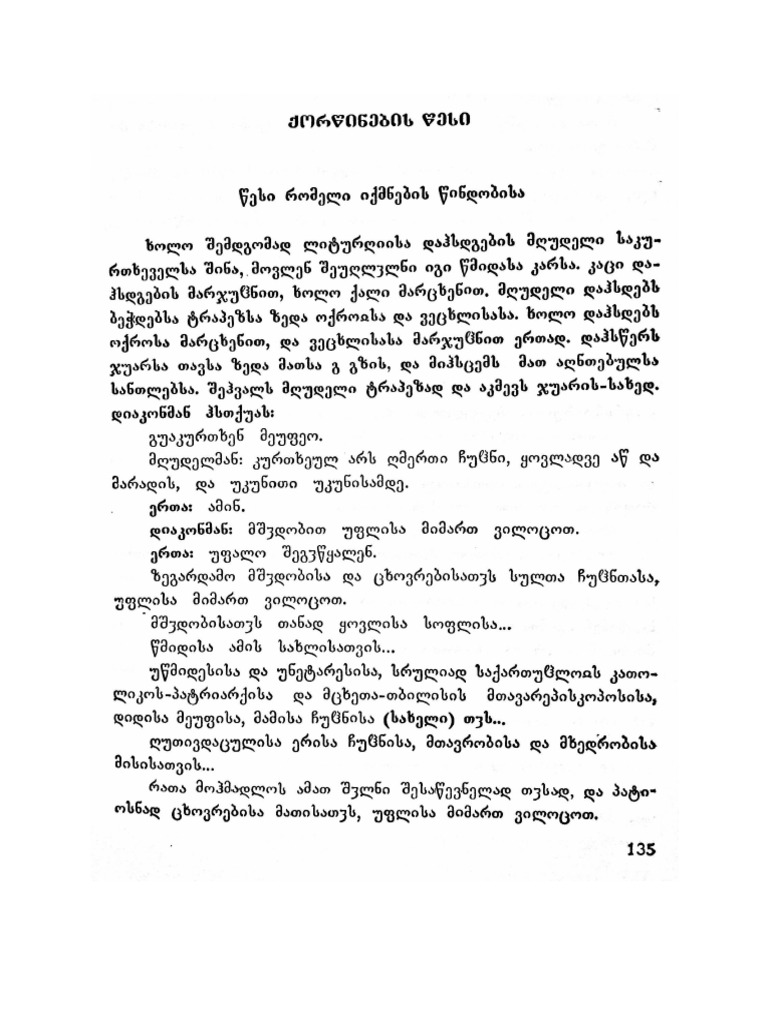 ქორწინების წესი
წესი რომელი იქმნების წინდობისა
ხოლო შემდგომად ლიტურღიისა დაჰსდგების მღუდელი საკუ-
რთხეველსა შინა, მოვლენ შეუღლჳლნი იგი წმიდასა კარსა. კაცი და-
ჰსდგების მარჯუჱნით, ხოლო ქალი მარცხენით. მღუდელი დაჰსდებს
ბეჭდებსა ტრაპეზსა ზედა ოქროჲსა და ვეცხლისასა. ხოლო დაჰსდებს
ოქროსა მარცხენით, და ვეცხლისასა მარჯუჱნით ერთად. დაჰსწერს
ჯუარსა თავსა ზედა მათსა გ გზის, და მიჰსცემს მათ აღნთებულსა
სანთლებსა. შეჰვალს მღუდელი ტრაპეზად და აკმევს ჯუარის-სახედ.
დიაკონმან ჰსთქუას:
გუაკურთხენ მეუფეო.
მღუდელმან: კურთხეულ არს ღმერთი ჩუჱნი, ყოვლადვე აწ და
მარადის, და უკუნითი უკუნისამდე.
ერთა: ამინ.
დიაკონმან: მშჳდობით უფლისა მიმართ ვილოცოთ.
ერთა: უფალო შეგჳწყალენ.
ზეგარდამო მშჳდობისა და ცხოვრებისათჳს სულთა ჩუჱნთასა,
უფლისა მიმართ ვილოცოთ.
მშჳდობისათჳს თანად ყოვლისა სოფლისა...
წმიდისა ამის სახლისათვის...
უწმიდესისა და უნეტარესისა, სრულიად საქართუჱლოჲს კათო-
ლიკოს-პატრიარქისა და მცხეთა-თბილისის მთავარეპისკოპოსისა,
დიდისა მეუფისა, მამისა ჩუჱნისა (სახელი) თჳს...
ღუთივდაცულისა ერისა ჩუჱნისა, მთავრობისა და მხედრობისა
მისისათვის...
რათა მოჰმადლოს ამათ შჳლნი შესაწევნელად თჳსად, და პატი-
ოსნად ცხოვრებისა მათისათჳს, უფლისა მიმართ ვილოცოთ.
135